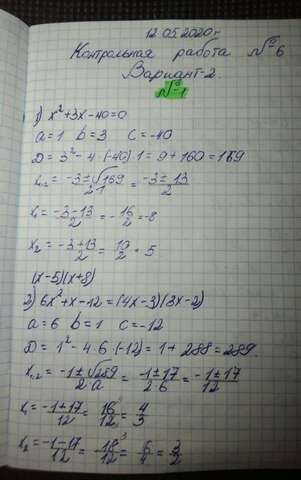 12.05.2020г.
Контрольная работа №6
Вариант-2.
№1
1) x²+3x-40=0
a=1 b=3 c=-40
D=3²-4·(-40)·1=9+160=169
x₁,₂=(-3±√169)/(2·1)=(-3±13)/2
x₁=(-3-13)/2=-16/2=-8
x₂=(-3+13)/2=10/2=5
(x-5)(x+8)
2) 6x²+x-12=(4x-3)(3x-2)
a=6 b=1 c=-12
D=1²-4·6·(-12)=1+288=289.
x₁,₂=(-1±√289)/(2a)=(-1±17)/(2·6)=(-1±17)/12
x₁=(-1+17)/12=16/12=4/3
x₂=(-1-17)/12=-18/12=6/4=3/2